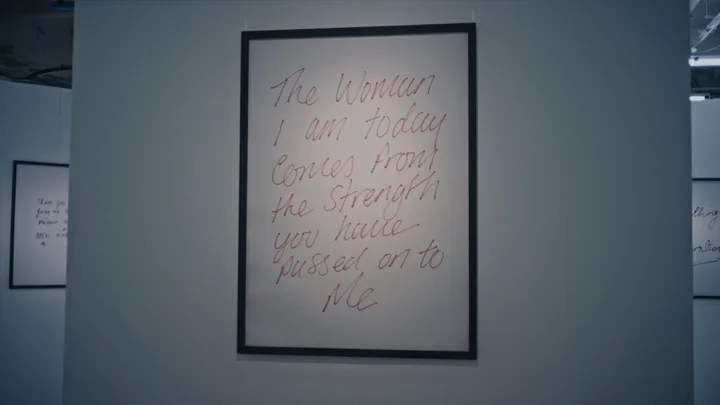 The Woman
I am today
Comes from
the Strength
you have
passed on to
Me
Thank you